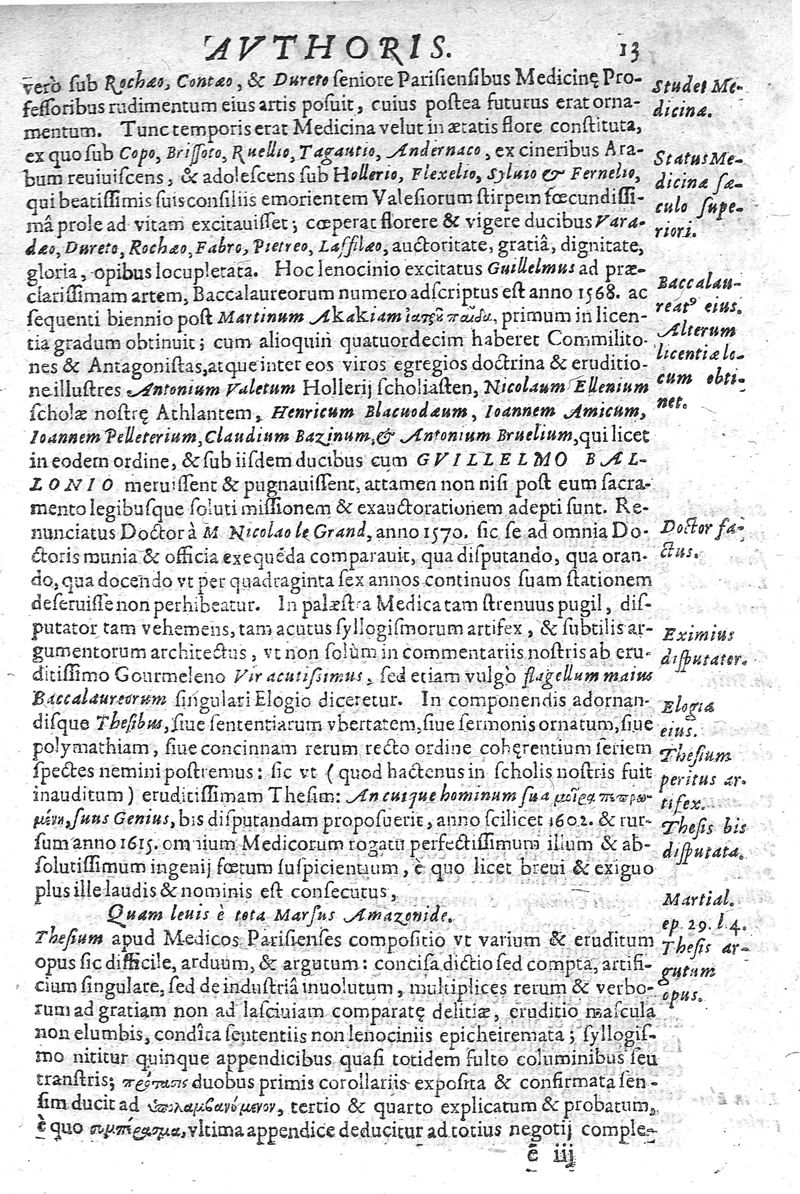 AVTHORIS. 13
verò sub Rochæo, Contæo, & Dureto seniore Parisiensibus Medicinę Pro-
fessoribus rudimentum eius artis posuit, cuius postea futurus erat orna-
mentum. Tunc temporis erat Medicina velut in ætatis flore constituta,
ex quo sub Copo, Brissoto, Ruellio, Tagautio, Andernaco, ex cineribus Ara-
bum reuiuiscens, & adolescens sub Hollerio, Flexelio, Syluio & Fernelio,
qui beatissimis suis consiliis emorientem Valesiorum stirpem fœcundissi-
mâ prole ad vitam excitauisset; cœperat florere & vigere ducibus Vara-
dæo, Dureto, Rochæo, Fabro, Pietreo, Laffilæo, auctoritate, gratiâ, dignitate,
gloria, opibus locupletata. Hoc lenocinio excitatus Guillelmus ad præ-
clarissimam artem, Baccalaureorum numero adscriptus est anno 1568. ac
sequenti biennio post Martinum Akakiam ἰατρῶν παῖδα, primum in licen-
tia gradum obtinuit; cum alioquin quatuordecim haberet Commilito-
nes & Antagonistas, atque inter eos viros egregios doctrina & eruditio-
ne illustres Antonium Valetum Hollerij scholiasten, Nicolaum Ellenium
scholæ nostrę Athlantem, Henricum Blacuodæum, Ioannem Amicum,
Ioannem Pelleterium, Claudium Bazinum, & Antonium Bruelium, qui licet
in eodem ordine, & sub iisdem ducibus cum GVILLELMO BAL-
LONIO meruissent & pugnauissent, attamen non nisi post eum sacra-
mento legibusque soluti missionem & exauctorationem adepti sunt. Re-
nunciatus Doctor à M. Nicolao le Grand, anno 1570. sic se ad omnia Do-
ctoris munia & officia exequẽda comparauit, qua disputando, qua oran-
do, qua docendo vt per quadraginta sex annos continuos suam stationem
deseruisse non perhibeatur. In palæstra Medica tam strenuus pugil, dis-
putator tam vehemens, tam acutus syllogismorum artifex, & subtilis ar-
gumentorum architectus, vt non solùm in commentariis nostris ab eru-
ditissimo Gourmeleno Vir acutissimus, sed etiam vulgò flagellum maius
Baccalaureorum singulari Elogio diceretur. In componendis adornan-
disque Thesibus, siue sententiarum vbertatem, siue sermonis ornatum, siue
polymathiam, siue concinnam rerum recto ordine cohęrentium seriem
spectes nemini postremus: sic vt (quod hactenus in scholis nostris fuit
inauditum) eruditissimam Thesim: An cuique hominum sua μοῖρα πεπρω-
μένη, suus Genius, bis disputandam proposuerit, anno scilicet 1602. & rur-
sum anno 1615. omnium Medicorum rogatu perfectissimum illum & ab-
solutissimum ingenij fœtum suspicientium, è quo licet breui & exiguo
plus ille laudis & nominis est consecutus,
Quam leuis è tota Marsus Amazonide.
Thesium apud Medicos Parisienses compositio vt varium & eruditum
opus sic difficile, arduum, & argutum: concisa dictio sed compta, artifi-
cium singulare, sed de industriâ inuolutum, multiplices rerum & verbo-
rum ad gratiam non ad lasciuiam comparatę delitiæ, eruditio mascula
non elumbis, condîta sententiis non lenociniis epicheiremata; syllogis-
mo nititur quinque appendicibus quasi totidem fulto columinibus seu
transtris; πρότασις duobus primis corollariis exposita & confirmata sen-
sim ducit ad ὑπολαμβανόμενον, tertio & quarto explicatum & probatum,
è quo συμπέρασμα, vltima appendice deducitur ad totius negotij comple-
ẽ iij
Studet Me-
dicinæ.
Status Me-
dicinæ sæ-
culo supe-
riori.
Baccalau-
reatꝰ eius.
Alterum
licentiæ lo-
cum obti-
net.
Doctor fa-
ctus.
Eximius
disputator.
Elogia
eius.
Thesium
peritus ar-
tifex.
Thesis bis
disputata.
Martial.
ep. 29. l. 4.
Thesis ar-
gutum
opus.